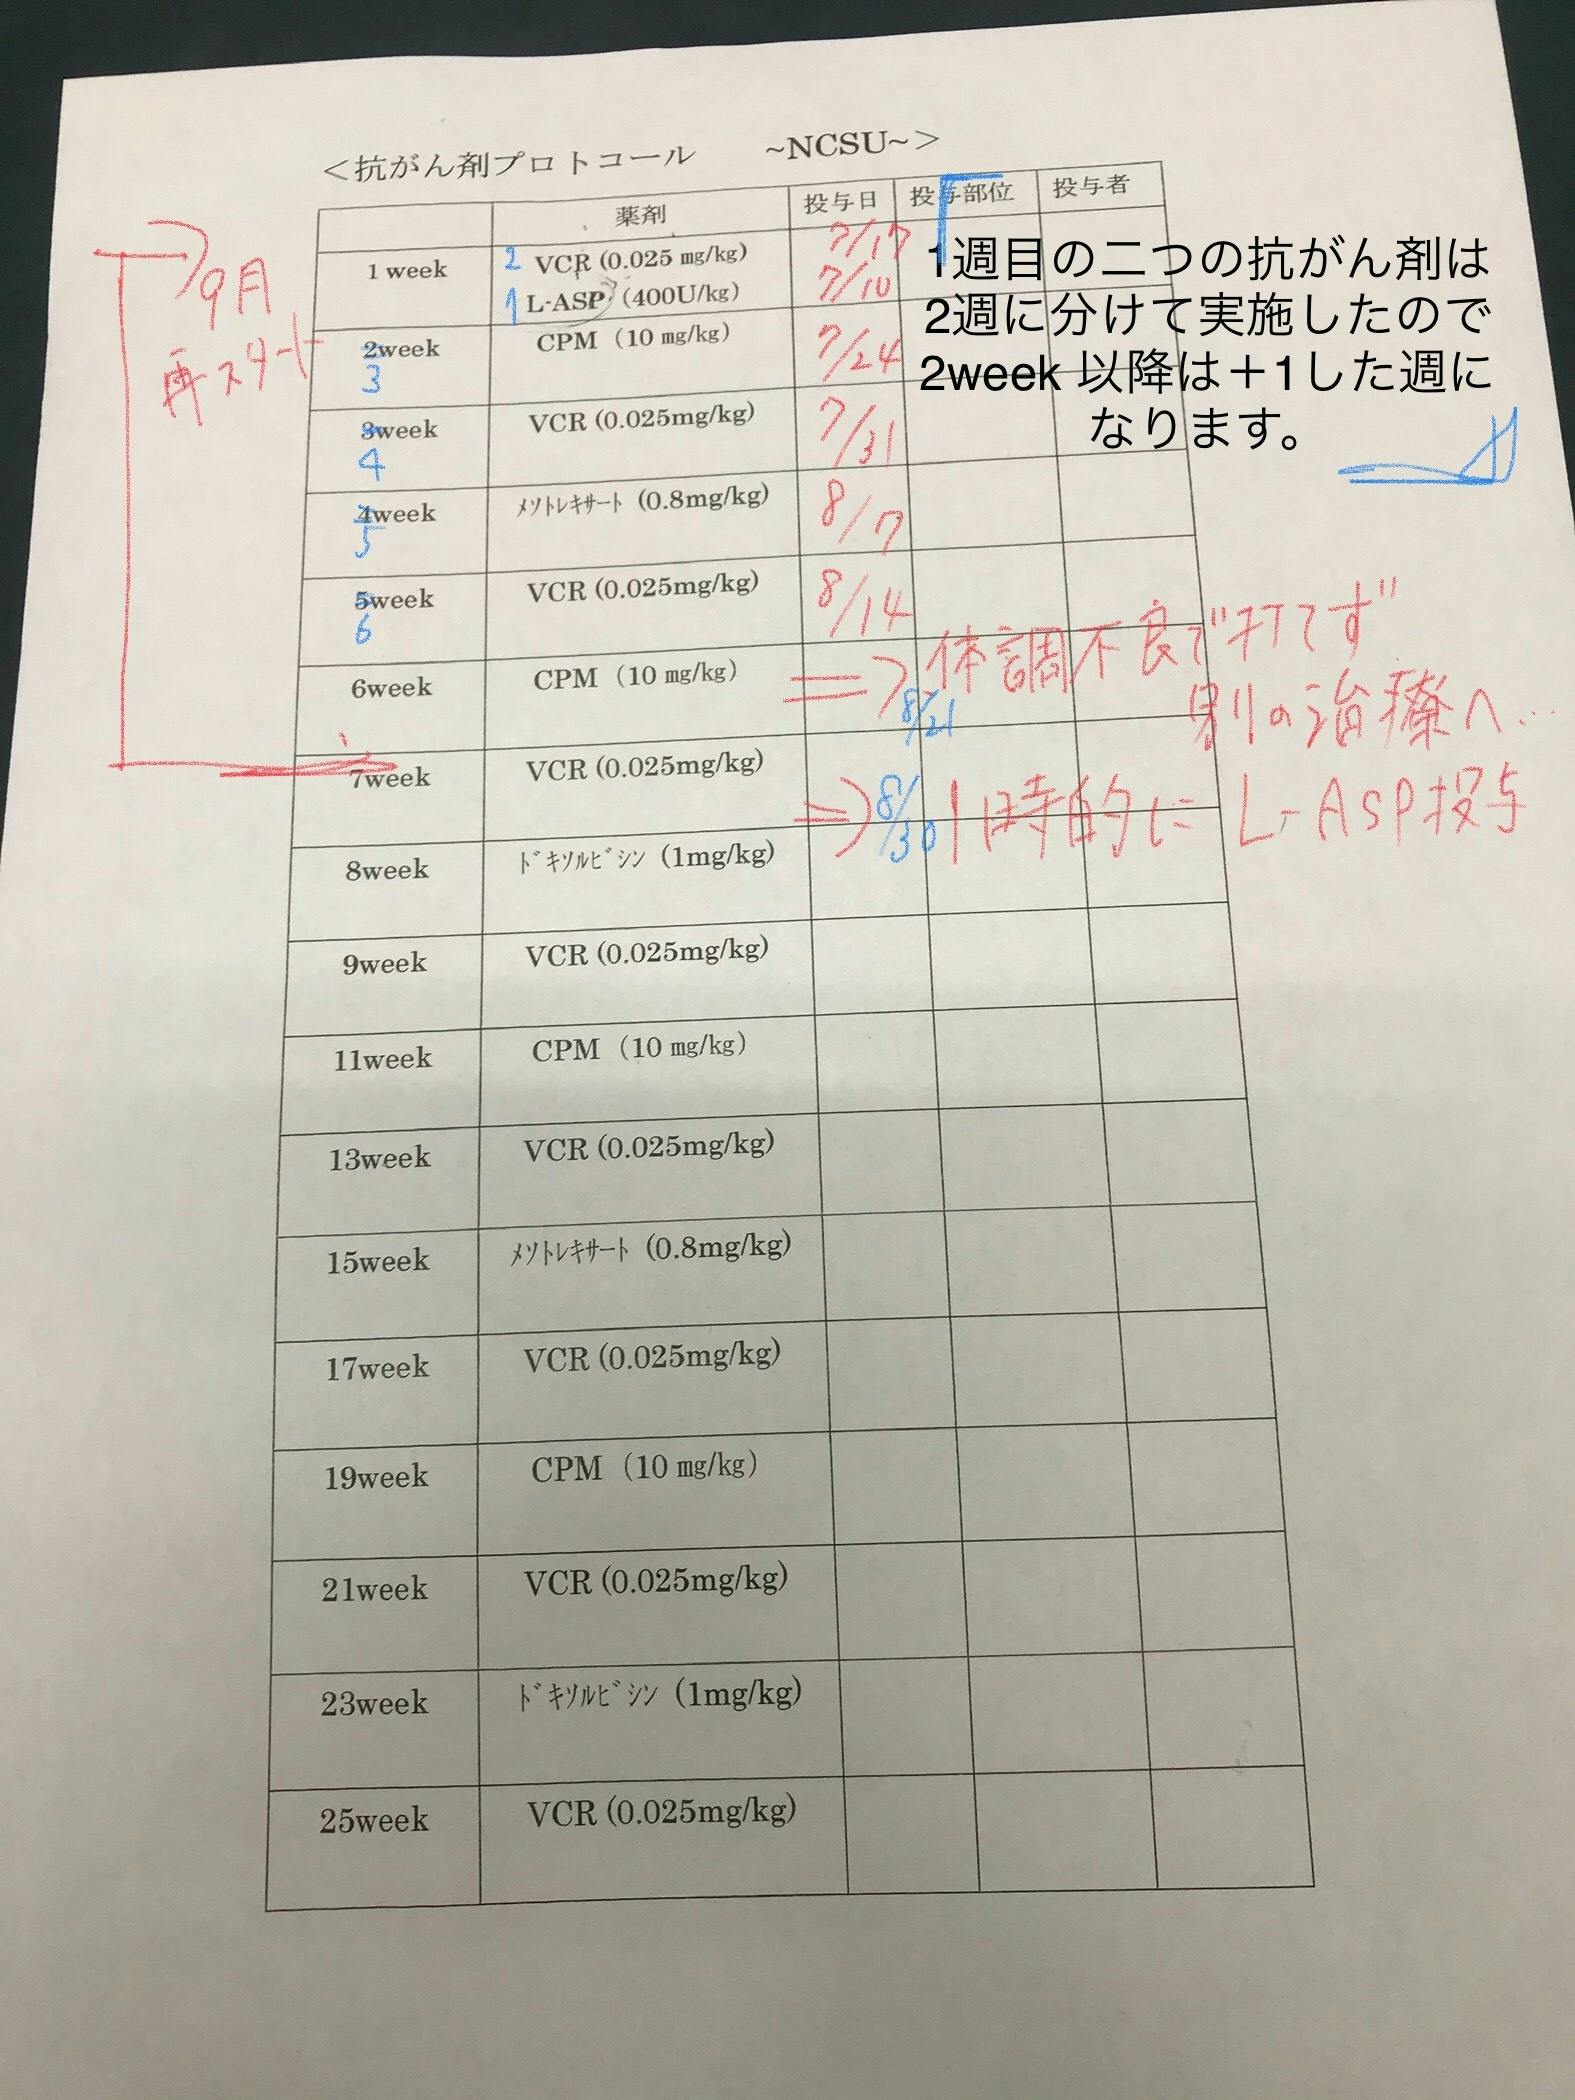 ＜抗がん剤プロトコール　　~NCSU~＞
薬剤 投与日 投与部位 投与者
1 week 2 VCR (0.025 ㎎/kg) 7/17
1 L-ASP (400U/kg) 7/10
1週目の二つの抗がん剤は
2週に分けて実施したので
2week 以降は＋1した週に
なります。
9月
再スタート
2week 3 CPM（10 ㎎/kg） 7/24
3week 4 VCR (0.025mg/kg) 7/31
4week 5 ﾒｿﾄﾚｷｻｰﾄ (0.8mg/kg) 8/7
5week 6 VCR (0.025mg/kg) 8/14
6week CPM（10 ㎎/kg） ⇒ 8/21 体調不良で打てず
別の治療へ…
7week VCR (0.025mg/kg) ⇒ 8/30 1時的に L-Asp投与
8week ﾄﾞｷｿﾙﾋﾞｼﾝ (1mg/kg)
9week VCR (0.025mg/kg)
11week CPM（10 ㎎/kg）
13week VCR (0.025mg/kg)
15week ﾒｿﾄﾚｷｻｰﾄ (0.8mg/kg)
17week VCR (0.025mg/kg)
19week CPM（10 ㎎/kg）
21week VCR (0.025mg/kg)
23week ﾄﾞｷｿﾙﾋﾞｼﾝ (1mg/kg)
25week VCR (0.025mg/kg)